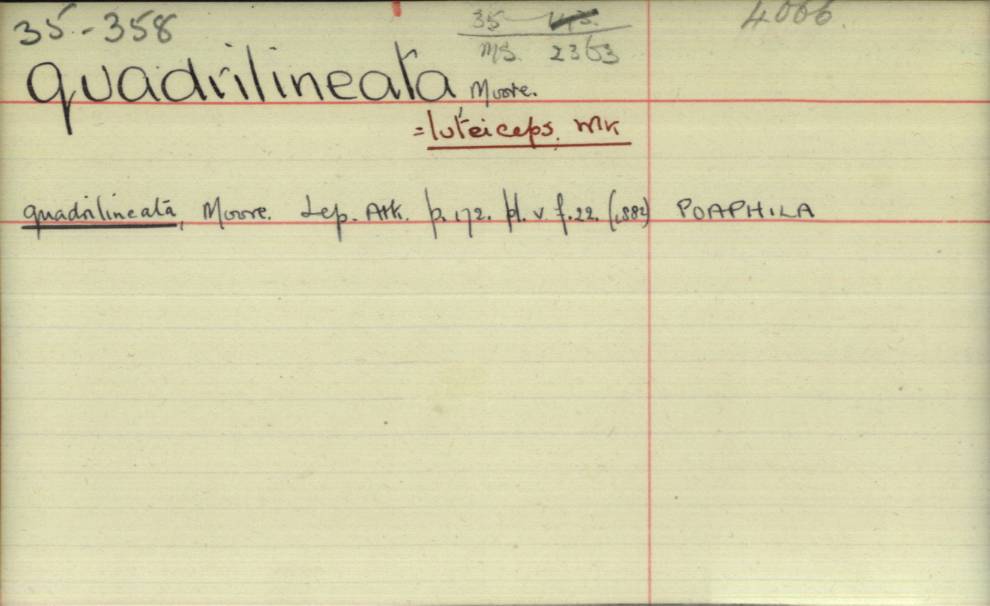 35-358
35
MS. 2363
4066.
quadrilineata, Moore.
=luteiceps, Wlk
quadrilineata, Moore. Lep. Atk. p.172. pl. v. f.22. (1882) POAPHILA